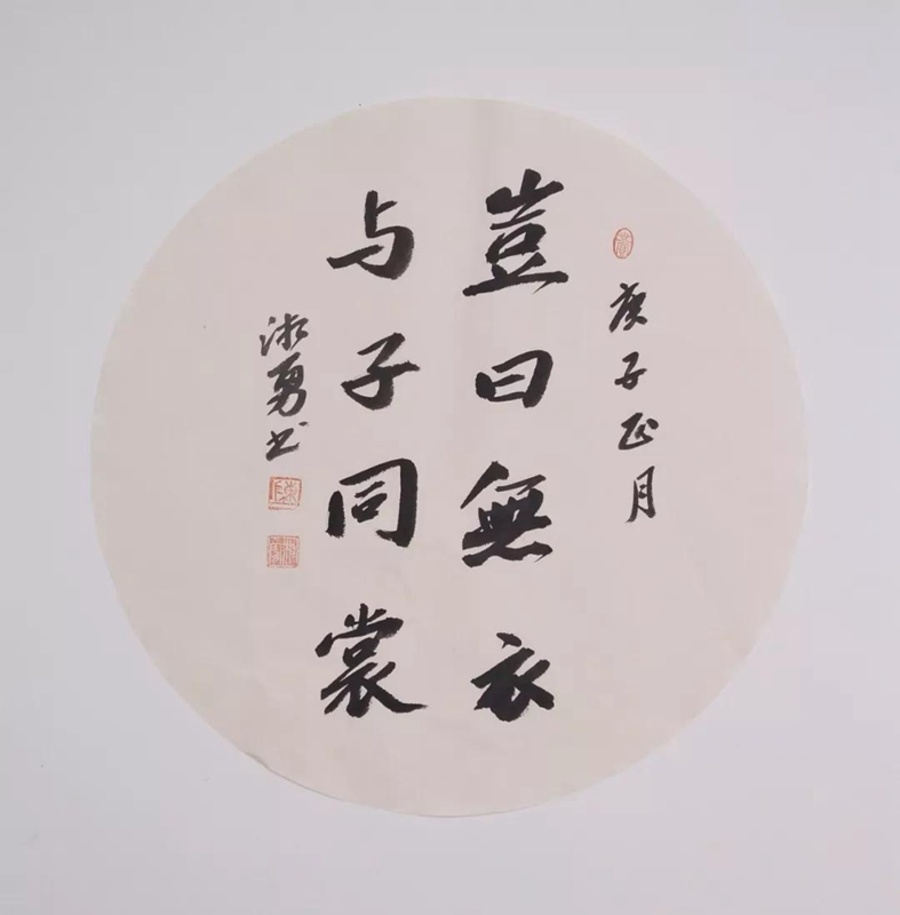 庚子正月
豈曰無衣
与子同裳
淑勇书